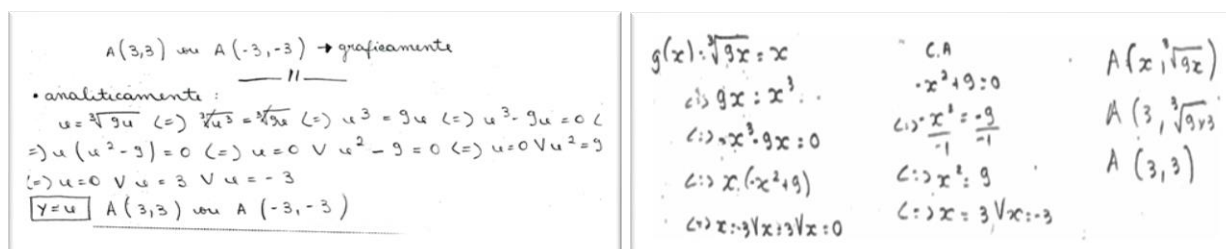 A(3,3) ou A(-3,-3) → graficamente
— 11 —
• analiticamente :
u = ∛9u (=) ∛u³ = ∛9u (=) u³ = 9u (=) u³ - 9u = 0 (
=) u (u² - 9) = 0 (=) u = 0 V u² - 9 = 0 (=) u = 0 V u² = 9
(=) u = 0 V u = 3 V u = -3
y = u A (3,3) ou A (-3,-3)
g(x) = ∛9x = x
(=) 9x = x³
(=) -x³ + 9x = 0
(=) x.(-x²+9)
(=) x = -3 V x = 3 V x = 0
C.A
-x² + 9 = 0
(=) -x²/-1 = -9/-1
(=) x² = 9
(=) x = 3 V x = -3
A (x, ∛9x)
A (3, ∛9×3)
A (3,3)